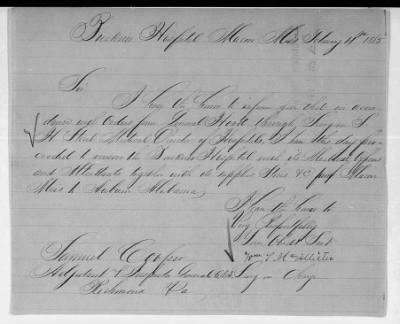 Buckner Hospital Macon Miss Febury 11th 1865
Sir
I have the honor to inform you that in accor-
dance with orders from General Hood through Surgeon S
H Stout Medical Director of Hospitals, I have this day pro-
ceeded to remove the Buckner Hospital with its Medical Officers
and Attendants together with its supplies Stores &c from Macon
Miss to Auburn Alabama
I have the honor to
be Very Respectfully
Your Obedt Servt
Wm T McAllister
Surg in Charge
Samuel Cooper
Adjutant & Inspector General C.S.A.
Richmond Va